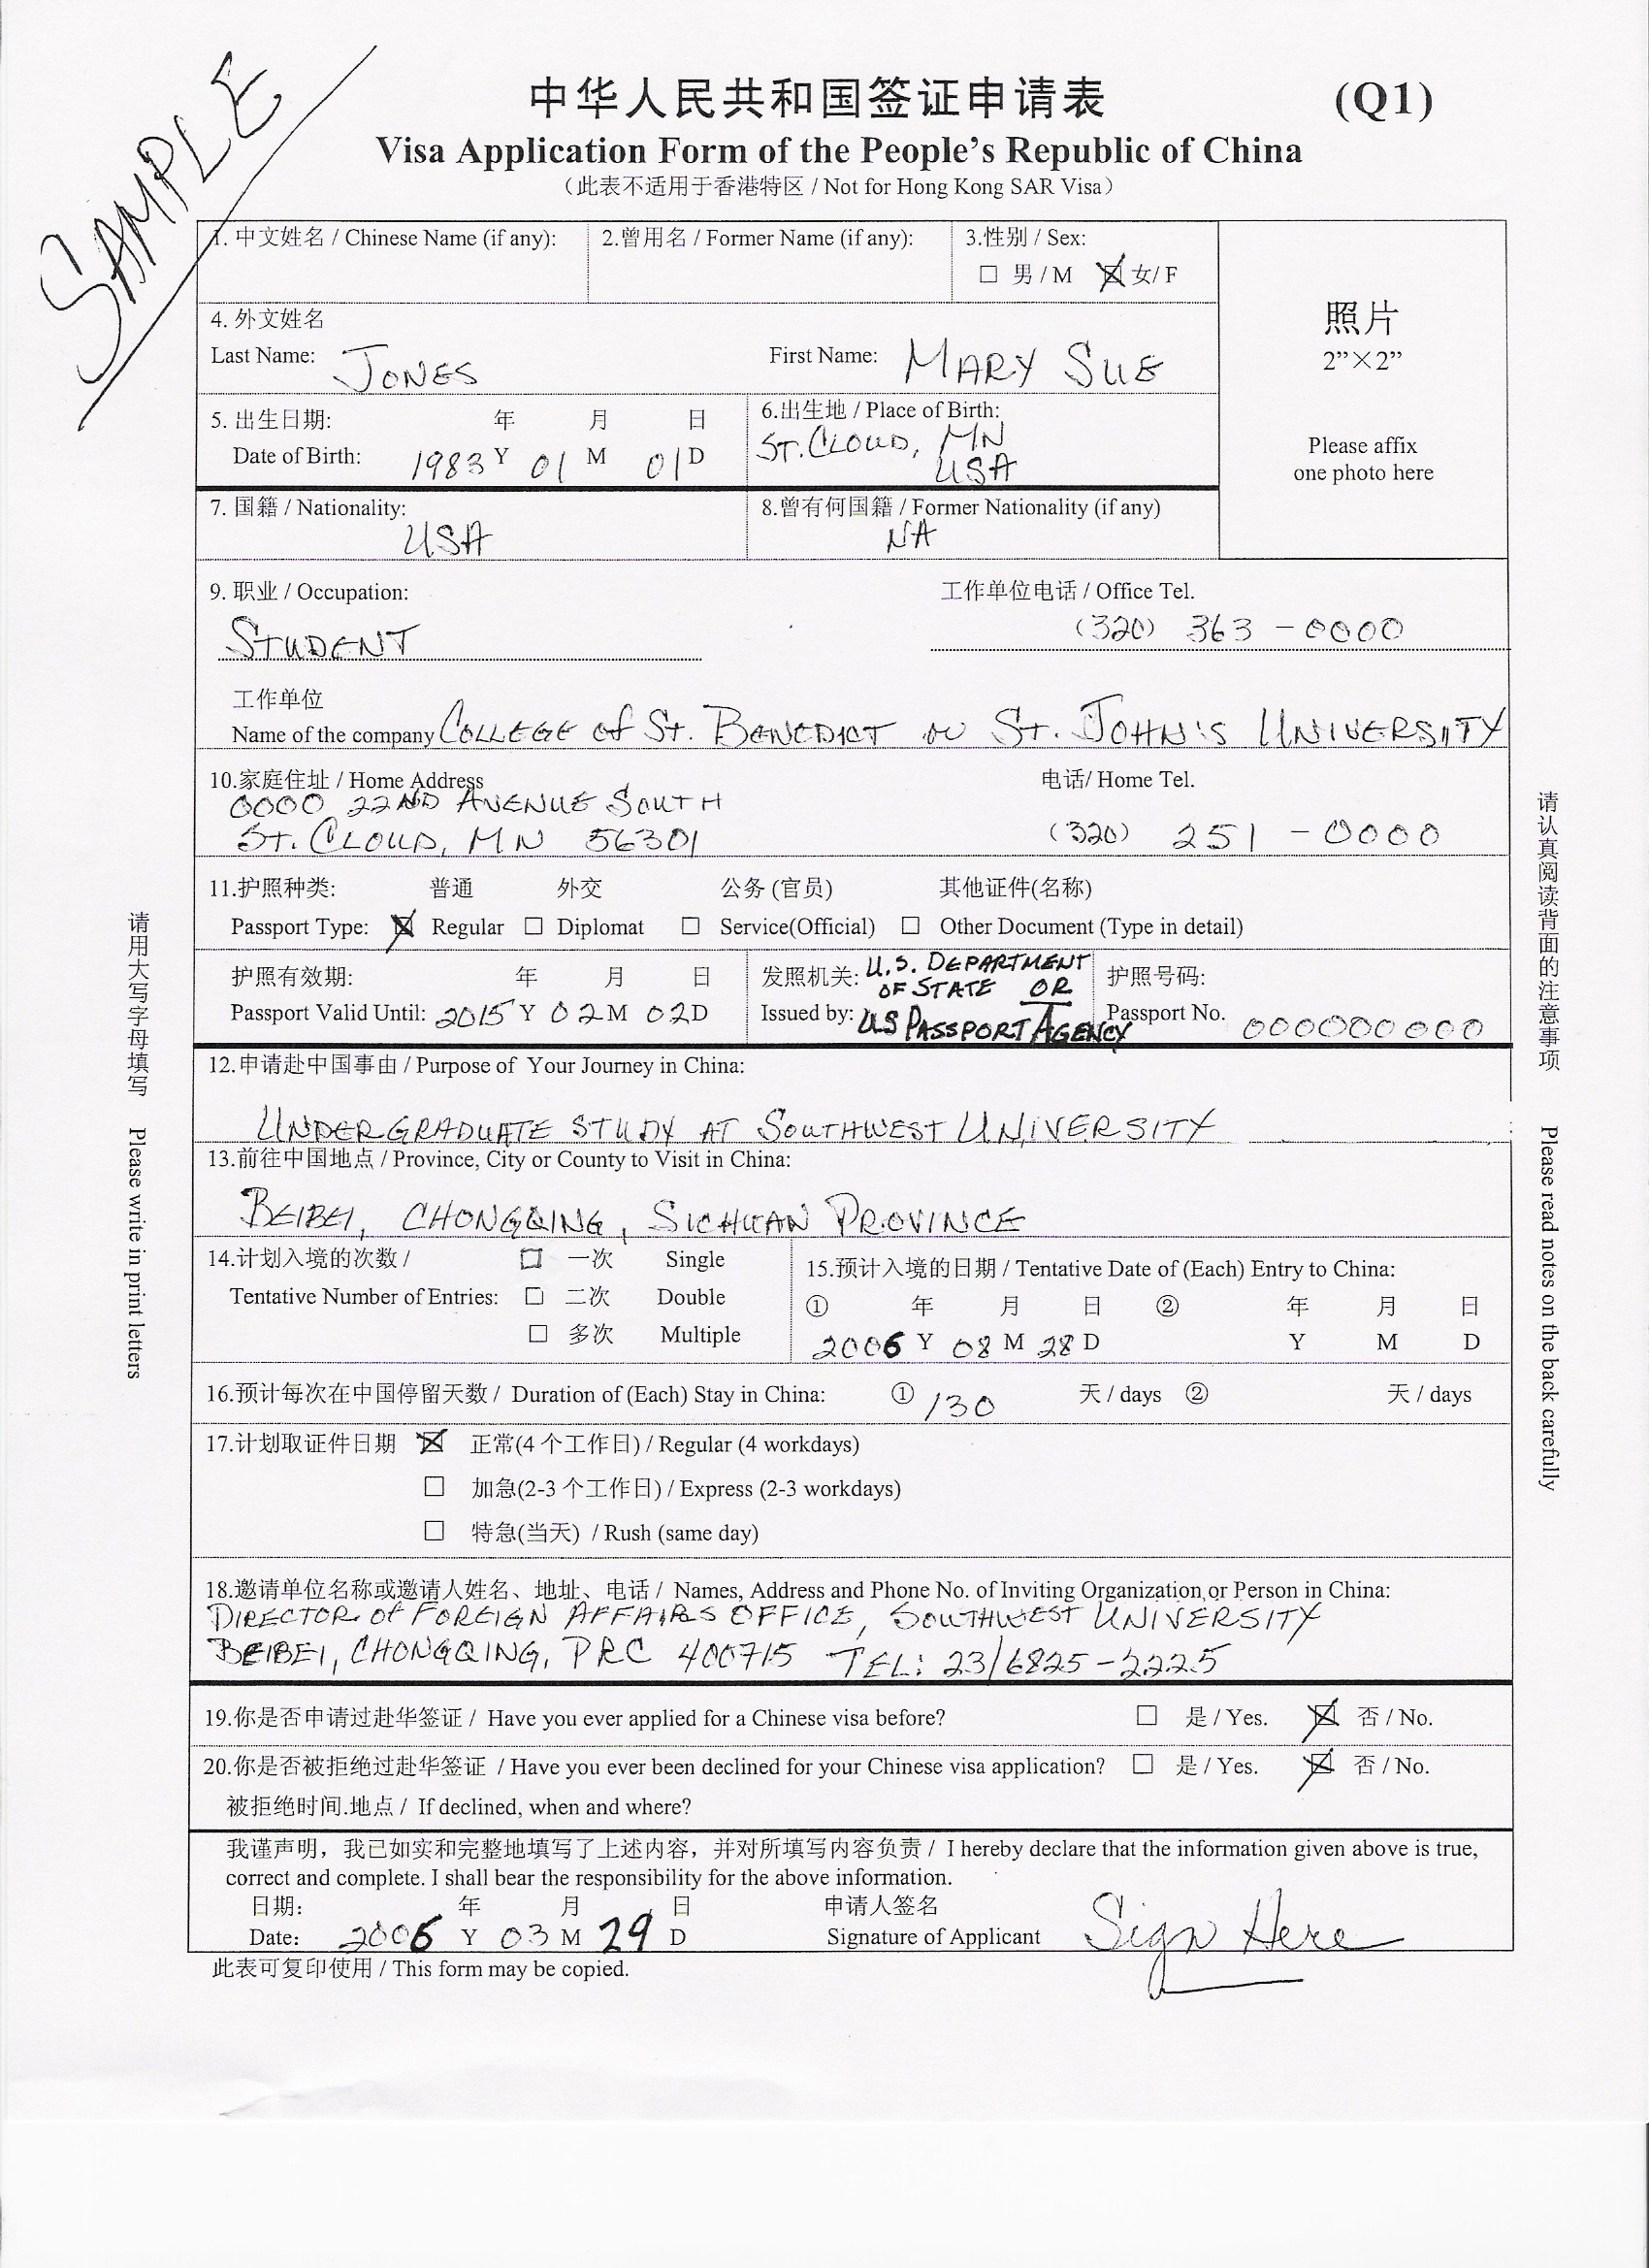 SAMPLE
中华人民共和国签证申请表 (Q1)
Visa Application Form of the People's Republic of China
（此表不适用于香港特区 / Not for Hong Kong SAR Visa）
1. 中文姓名 / Chinese Name (if any): 2.曾用名 / Former Name (if any): 3.性别 / Sex:
□ 男 / M ☒ 女/ F
照片
2”×2”
Please affix
one photo here
4. 外文姓名
Last Name: JONES First Name: MARY SUE
5. 出生日期: 年 月 日 6.出生地 / Place of Birth:
Date of Birth: 1983 Y 01 M 01 D ST. CLOUD, MN
USA
7. 国籍 / Nationality: 8.曾有何国籍 / Former Nationality (if any)
USA NA
9. 职业 / Occupation: 工作单位电话 / Office Tel.
STUDENT (320) 363 - 0000
工作单位
Name of the company COLLEGE of ST. BENEDICT ST. JOHN'S UNIVERSITY
10.家庭住址 / Home Address 电话/ Home Tel.
0000 22ND AVENUE SOUTH
ST. CLOUD, MN 56301 (320) 251 - 0000
11.护照种类: 普通 外交 公务 (官员) 其他证件(名称)
Passport Type: ☒ Regular □ Diplomat □ Service(Official) □ Other Document (Type in detail)
护照有效期: 年 月 日 发照机关: U.S. DEPARTMENT 护照号码:
OF STATE OR
Passport Valid Until: 2015 Y 02 M 02 D Issued by: US PASSPORT AGENCY Passport No. 000000000
12.申请赴中国事由 / Purpose of Your Journey in China:
UNDERGRADUATE STUDY AT SOUTHWEST UNIVERSITY
13.前往中国地点 / Province, City or County to Visit in China:
BEIBEI, CHONGQING, SICHUAN PROVINCE
14.计划入境的次数 / □ 一次 Single 15.预计入境的日期 / Tentative Date of (Each) Entry to China:
Tentative Number of Entries: □ 二次 Double ① 年 月 日 ② 年 月 日
□ 多次 Multiple 2006 Y 08 M 28 D Y M D
16.预计每次在中国停留天数 / Duration of (Each) Stay in China: ① 130 天 / days ② 天 / days
17.计划取证件日期 ☒ 正常(4 个工作日) / Regular (4 workdays)
□ 加急(2-3 个工作日) / Express (2-3 workdays)
□ 特急(当天) / Rush (same day)
18.邀请单位名称或邀请人姓名、地址、电话 / Names, Address and Phone No. of Inviting Organization or Person in China:
DIRECTOR OF FOREIGN AFFAIRS OFFICE, SOUTHWEST UNIVERSITY
BEIBEI, CHONGQING, PRC 400715 TEL: 23/6825-2225
19.你是否申请过赴华签证 / Have you ever applied for a Chinese visa before? □ 是 / Yes. ☒ 否 / No.
20.你是否被拒绝过赴华签证 / Have you ever been declined for your Chinese visa application? □ 是 / Yes. ☒ 否 / No.
被拒绝时间.地点 / If declined, when and where?
我谨声明，我已如实和完整地填写了上述内容，并对所填写内容负责 / I hereby declare that the information given above is true,
correct and complete. I shall bear the responsibility for the above information.
日期: 年 月 日 申请人签名
Date: 2006 Y 03 M 29 D Signature of Applicant Sign Here
此表可复印使用 / This form may be copied.
请用大写字母填写 Please write in print letters
请认真阅读背面的注意事项 Please read notes on the back carefully